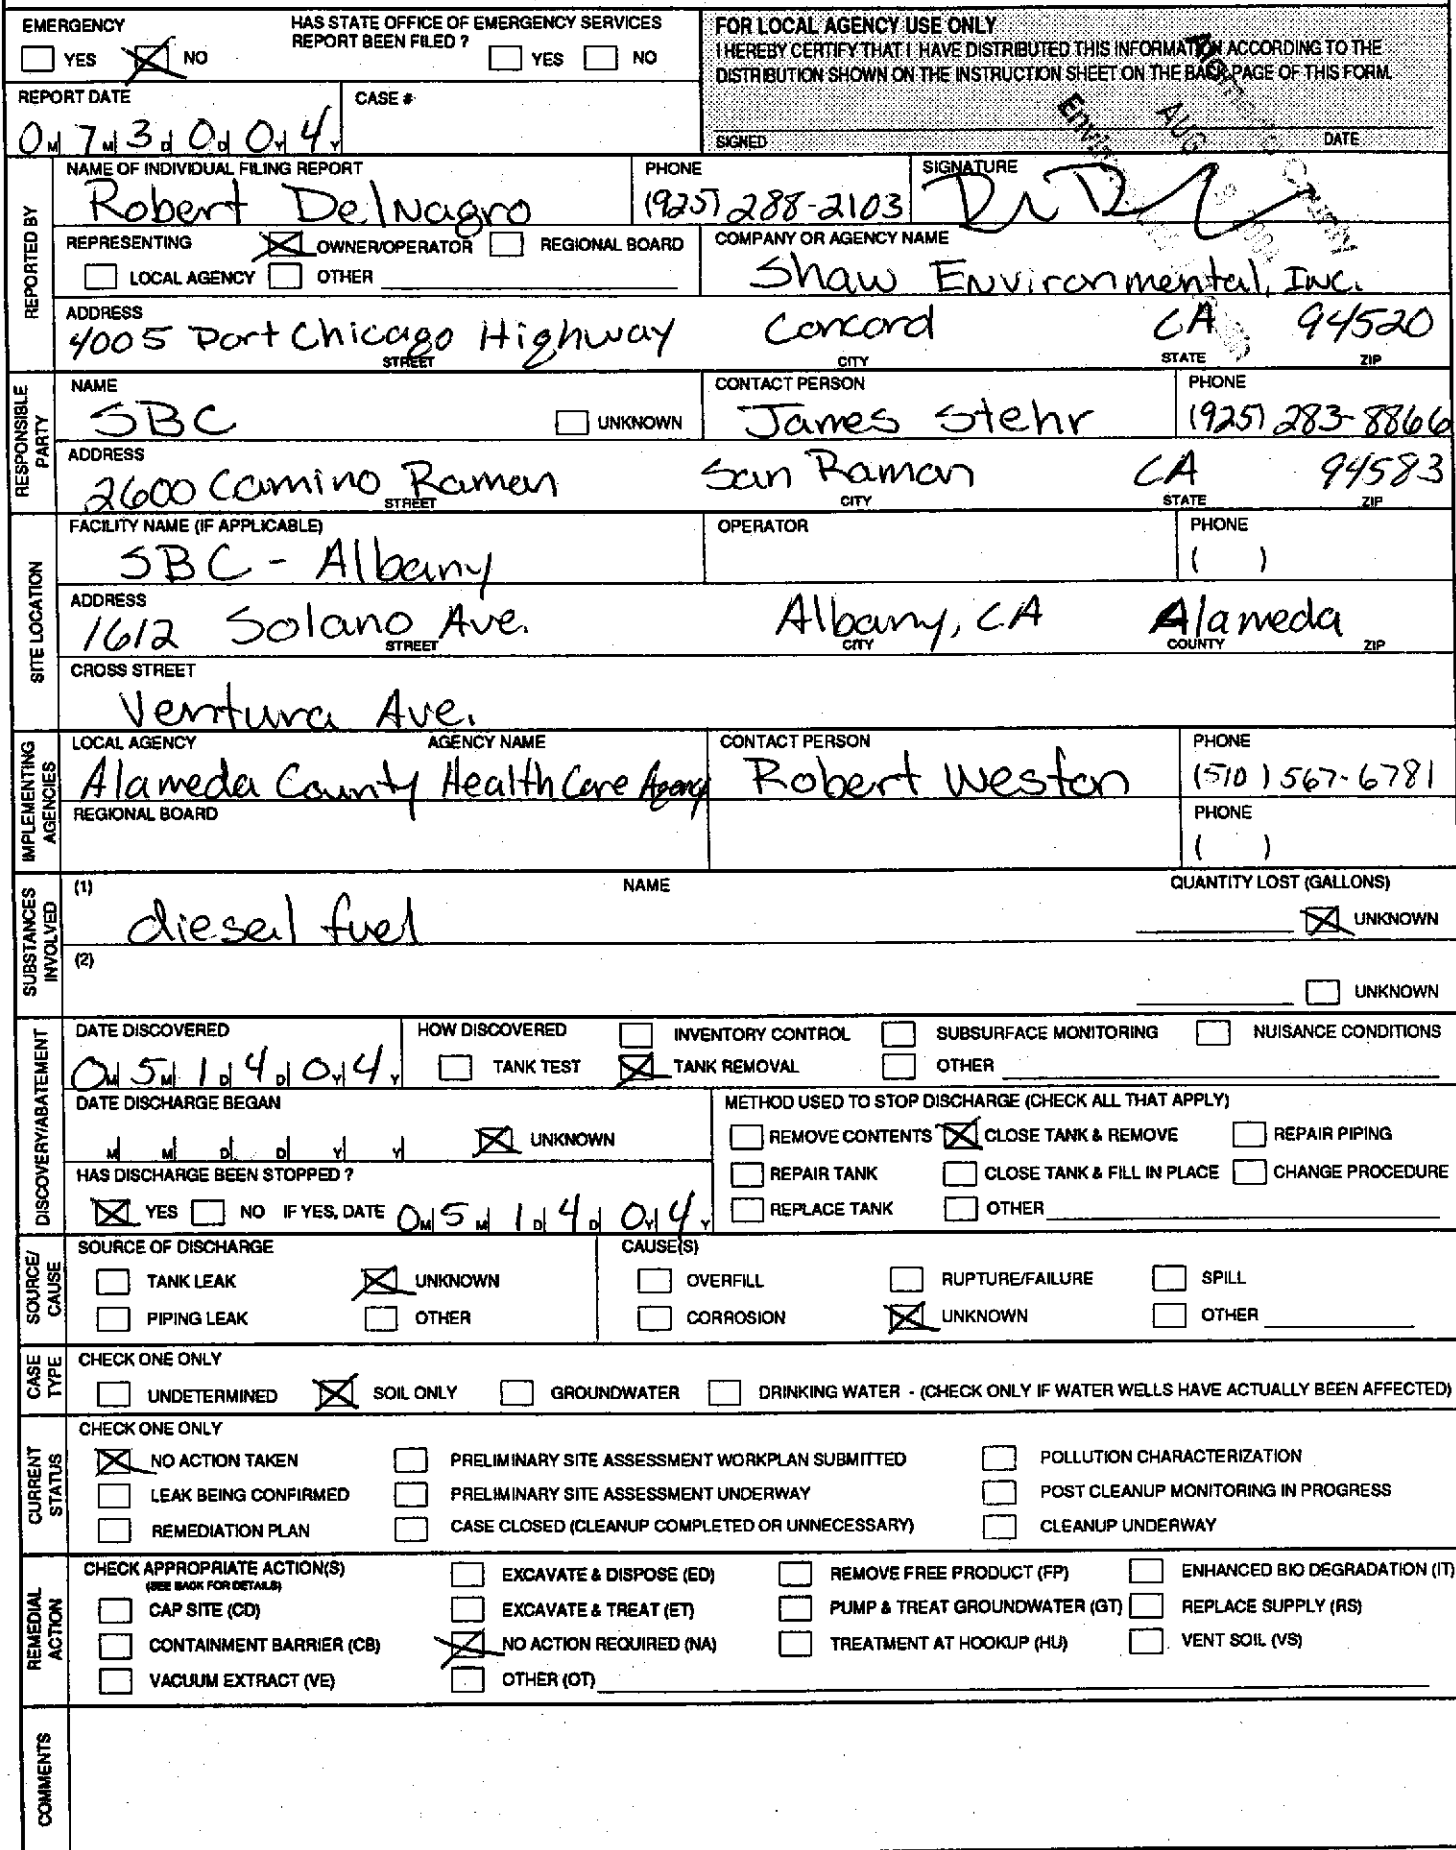 EMERGENCY
YES NO
HAS STATE OFFICE OF EMERGENCY SERVICES
REPORT BEEN FILED ? YES NO
FOR LOCAL AGENCY USE ONLY
I HEREBY CERTIFY THAT I HAVE DISTRIBUTED THIS INFORMATION ACCORDING TO THE
DISTRIBUTION SHOWN ON THE INSTRUCTION SHEET ON THE BACK PAGE OF THIS FORM.
SIGNED DATE
REPORT DATE
0 M 7 M 3 D 0 D 0 Y 4 Y
CASE #
REPORTED BY
NAME OF INDIVIDUAL FILING REPORT
Robert DelNagro
PHONE
(925) 288-2103
SIGNATURE
REPRESENTING OWNER/OPERATOR REGIONAL BOARD
LOCAL AGENCY OTHER
COMPANY OR AGENCY NAME
Shaw Environmental, Inc.
ADDRESS
4005 Port Chicago Highway Concord CA 94520
STREET CITY STATE ZIP
RESPONSIBLE PARTY
NAME
SBC UNKNOWN
CONTACT PERSON
James Stehr
PHONE
(925) 283-8866
ADDRESS
2600 Camino Ramon San Ramon CA 94583
STREET CITY STATE ZIP
SITE LOCATION
FACILITY NAME (IF APPLICABLE)
SBC - Albany
OPERATOR
PHONE
( )
ADDRESS
1612 Solano Ave. Albany, CA Alameda
STREET CITY COUNTY ZIP
CROSS STREET
Ventura Ave.
IMPLEMENTING AGENCIES
LOCAL AGENCY AGENCY NAME
Alameda County Health Care Agency
CONTACT PERSON
Robert Weston
PHONE
(510) 567-6781
REGIONAL BOARD
PHONE
( )
SUBSTANCES INVOLVED
(1) NAME QUANTITY LOST (GALLONS)
diesel fuel UNKNOWN
(2)
UNKNOWN
DISCOVERY/ABATEMENT
DATE DISCOVERED
0 M 5 M 1 D 4 D 0 Y 4 Y
HOW DISCOVERED INVENTORY CONTROL SUBSURFACE MONITORING NUISANCE CONDITIONS
TANK TEST TANK REMOVAL OTHER
DATE DISCHARGE BEGAN
M M D D Y Y UNKNOWN
METHOD USED TO STOP DISCHARGE (CHECK ALL THAT APPLY)
REMOVE CONTENTS CLOSE TANK & REMOVE REPAIR PIPING
REPAIR TANK CLOSE TANK & FILL IN PLACE CHANGE PROCEDURE
REPLACE TANK OTHER
HAS DISCHARGE BEEN STOPPED ?
YES NO IF YES, DATE 0 M 5 M 1 D 4 D 0 Y 4 Y
SOURCE/ CAUSE
SOURCE OF DISCHARGE
TANK LEAK UNKNOWN
PIPING LEAK OTHER
CAUSE(S)
OVERFILL RUPTURE/FAILURE SPILL
CORROSION UNKNOWN OTHER
CASE TYPE
CHECK ONE ONLY
UNDETERMINED SOIL ONLY GROUNDWATER DRINKING WATER - (CHECK ONLY IF WATER WELLS HAVE ACTUALLY BEEN AFFECTED)
CURRENT STATUS
CHECK ONE ONLY
NO ACTION TAKEN PRELIMINARY SITE ASSESSMENT WORKPLAN SUBMITTED POLLUTION CHARACTERIZATION
LEAK BEING CONFIRMED PRELIMINARY SITE ASSESSMENT UNDERWAY POST CLEANUP MONITORING IN PROGRESS
REMEDIATION PLAN CASE CLOSED (CLEANUP COMPLETED OR UNNECESSARY) CLEANUP UNDERWAY
REMEDIAL ACTION
CHECK APPROPRIATE ACTION(S)
(SEE BACK FOR DETAILS)
EXCAVATE & DISPOSE (ED) REMOVE FREE PRODUCT (FP) ENHANCED BIO DEGRADATION (IT)
CAP SITE (CD) EXCAVATE & TREAT (ET) PUMP & TREAT GROUNDWATER (GT) REPLACE SUPPLY (RS)
CONTAINMENT BARRIER (CB) NO ACTION REQUIRED (NA) TREATMENT AT HOOKUP (HU) VENT SOIL (VS)
VACUUM EXTRACT (VE) OTHER (OT)
COMMENTS